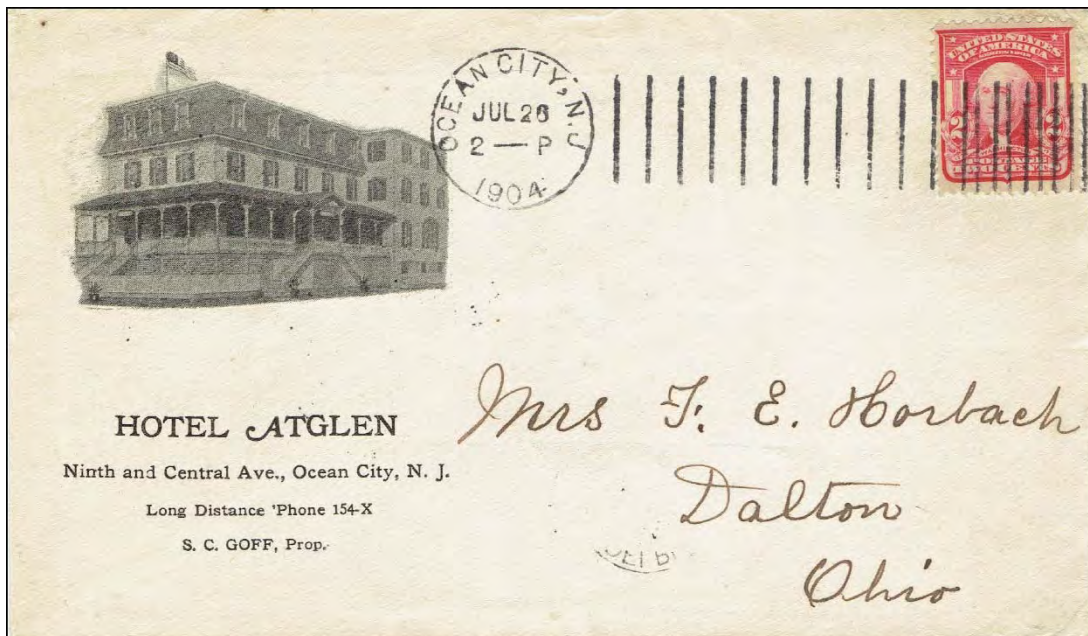 OCEAN CITY, N.J.
JUL 26
2 — P
1904
UNITED STATES
OF AMERICA
2 2
HOTEL ATGLEN
Ninth and Central Ave., Ocean City, N. J.
Long Distance 'Phone 154-X
S. C. GOFF, Prop.
Mrs F. E. Horbach
Dalton
Ohio